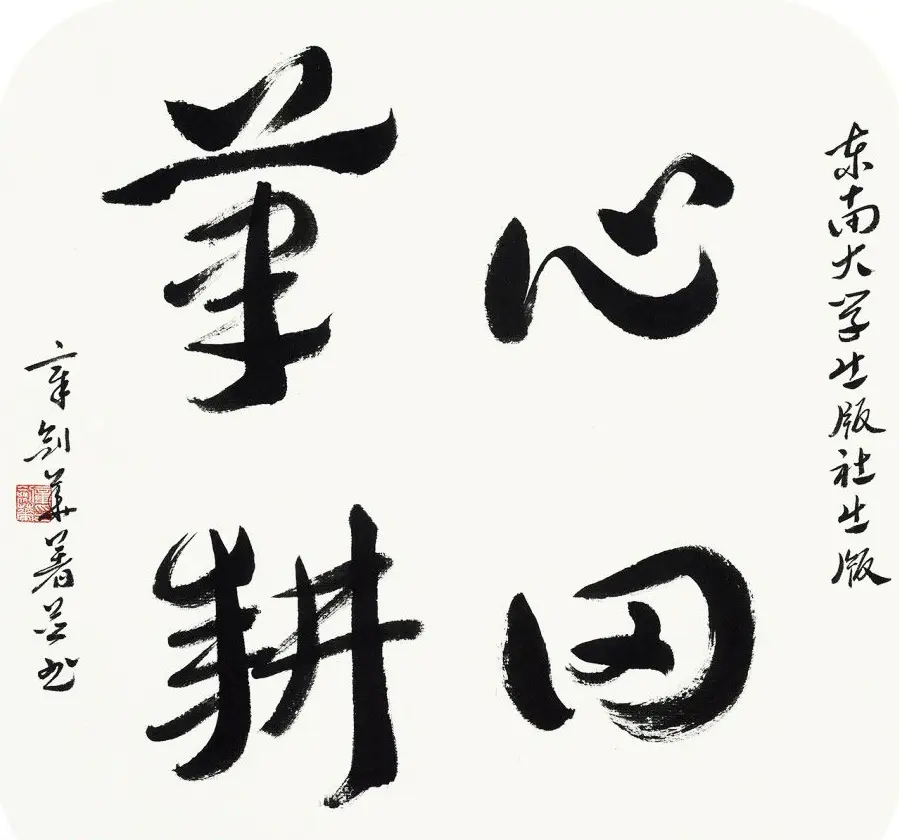 东南大学出版社出版
心田
筆耕
章剑華著并书